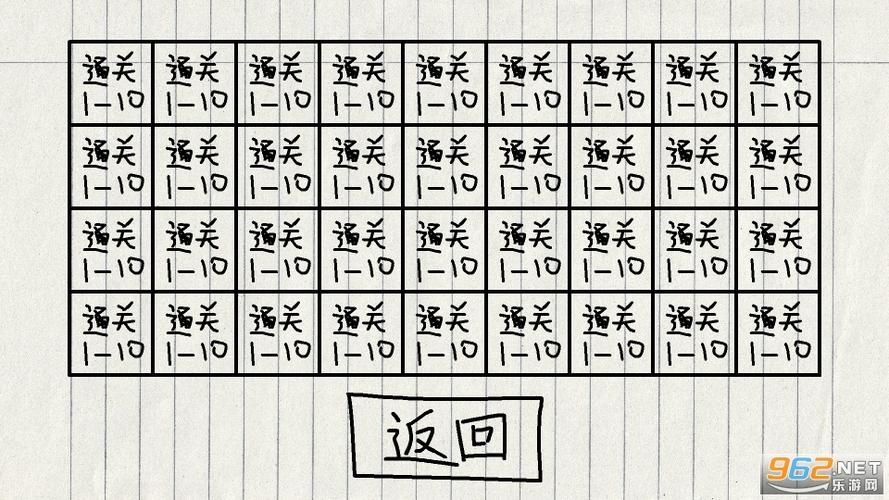 通关 通关 通关 通关 通关 通关 通关 通关 通关
1-10 1-10 1-10 1-10 1-10 1-10 1-10 1-10 1-10
通关 通关 通关 通关 通关 通关 通关 通关 通关
1-10 1-10 1-10 1-10 1-10 1-10 1-10 1-10 1-10
通关 通关 通关 通关 通关 通关 通关 通关 通关
1-10 1-10 1-10 1-10 1-10 1-10 1-10 1-10 1-10
通关 通关 通关 通关 通关 通关 通关 通关 通关
1-10 1-10 1-10 1-10 1-10 1-10 1-10 1-10 1-10
返回
962.NET
乐游网